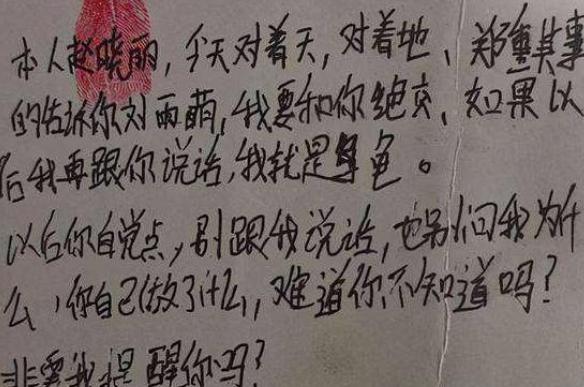 本人赵晓丽,今天对着天,对着地、郑重其事
的告诉你刘雨萌,我要和你绝交、如果以
后我再跟你说话,我就是角色。
以后你自觉点,别跟我说话,也别问我为什
么,你自己做了什么,难道你不知道吗?
非需我提醒你吗?